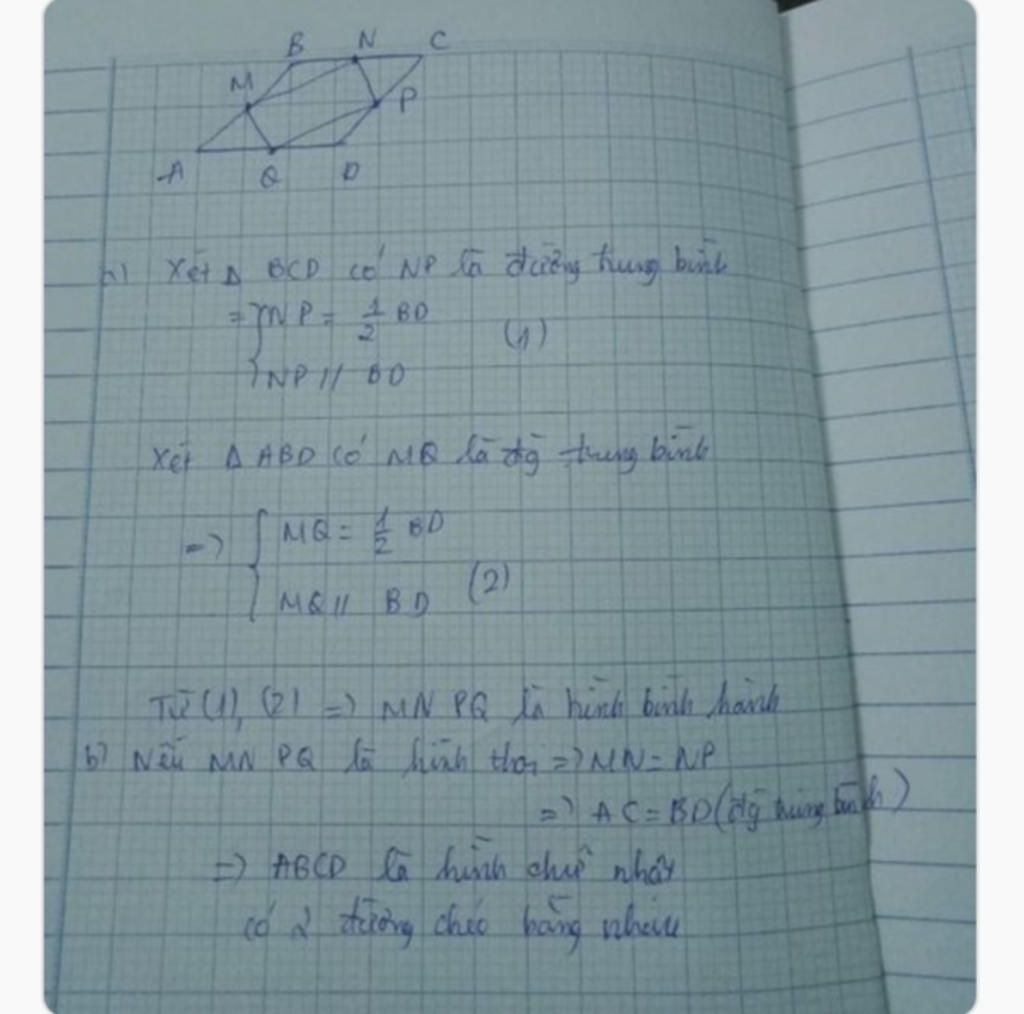 B N C
M
P
A Q D
a) Xét Δ BCD có NP là đường trung bình
=> { NP = 1/2 BD
(1)
NP // BD
Xét Δ ABD có MQ là đg trung bình
=> { MQ = 1/2 BD
MQ // BD (2)
Từ (1), (2) => MNPQ là hình bình hành
b) Nếu MNPQ là hình thoi => MN = NP
=> AC = BD (đg trung bình)
=> ABCD là hình chữ nhật
có 2 đường chéo bằng nhau